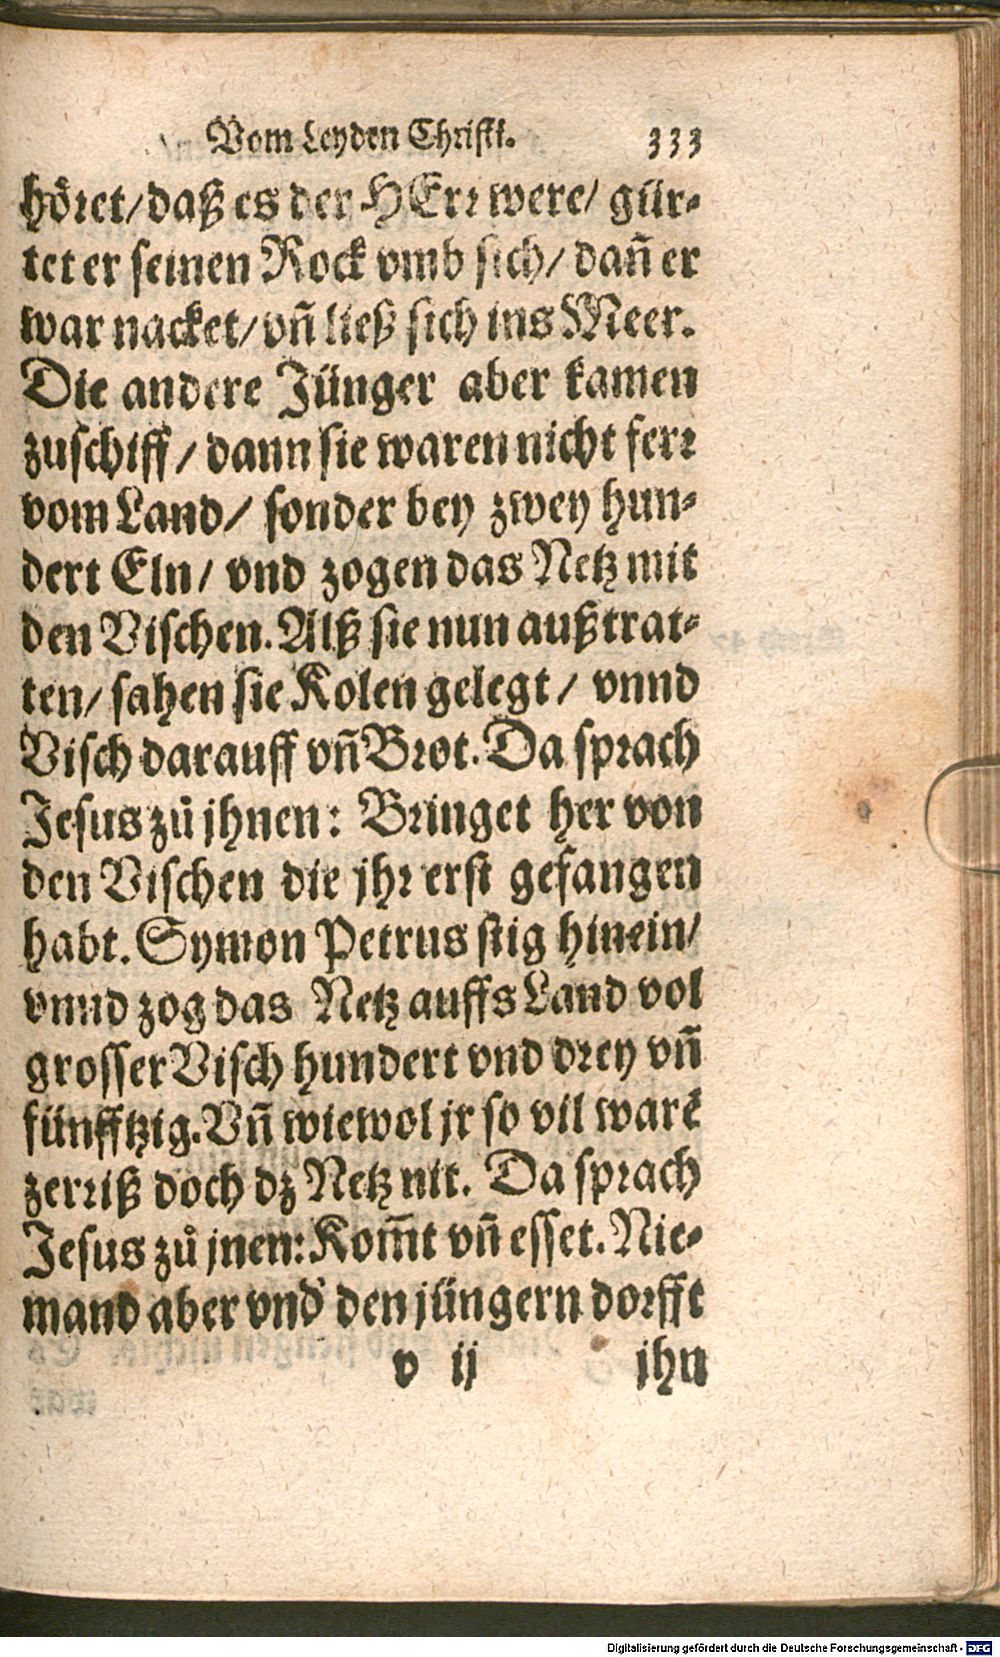 Vom Leyden Christi. 333
hoͤret/daß es der HErr were/ gür-
tet er seinen Rock vmb sich/ dañ er
war nacket/vñ ließ sich ins Meer.
Die andere Jünger aber kamen
zuschiff/ dann sie waren nicht ferr
vom Land/ sonder bey zwey hun-
dert Eln/ vnd zogen das Netz mit
den Vischen. Alß sie nun außtrat-
ten/ sahen sie Kolen gelegt/ vnnd
Visch darauff vñ Brot. Da sprach
Jesus zů jhnen: Bringet her von
den Vischen die jhr erst gefangen
habt. Symon Petrus stig hinein/
vnnd zog das Netz auffs Land vol
grosser Visch hundert vnd drey vñ
fünfftzig. Vñ wiewol jr so vil warẽ
zerriß doch dz Netz nit. Da sprach
Jesus zů jnen: Kom̃t vñ esset. Nie-
mand aber vnd̕ den jüngern dorfft
v ij jhn
Digitalisierung gefördert durch die Deutsche Forschungsgemeinschaft - DFG